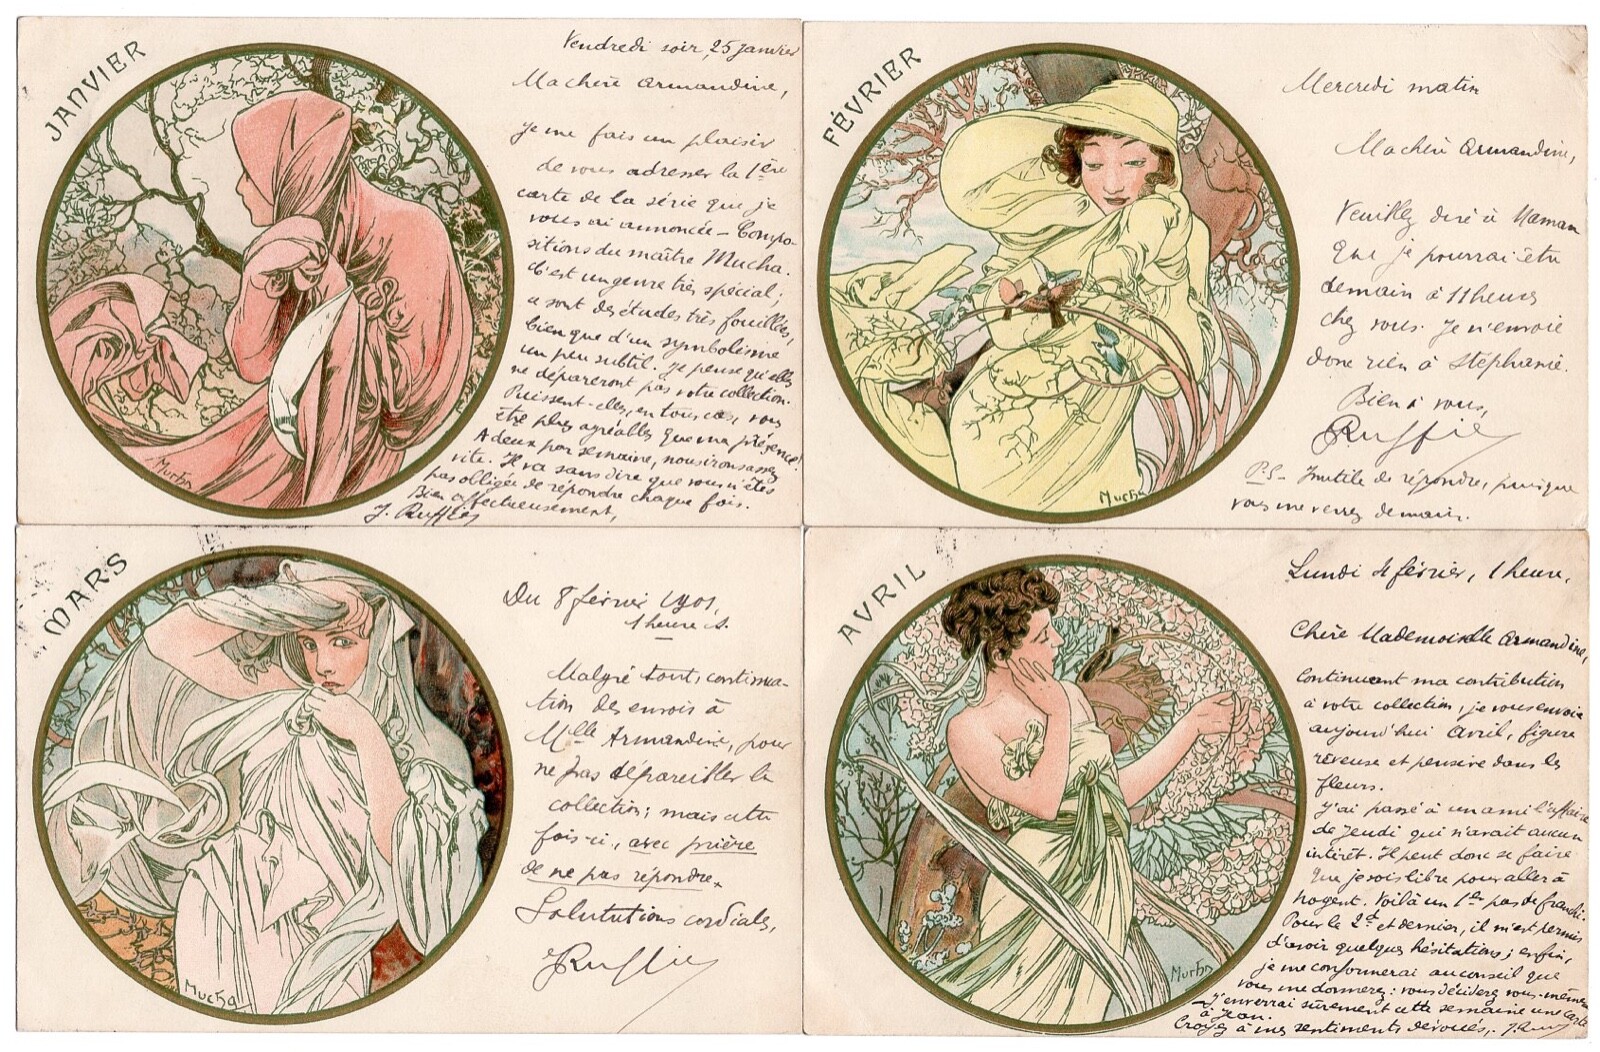 JANVIER
Vendredi soir, 25 janvier
Ma chère Armandine,
Je me fais un plaisir
de vous adresser la 1ère
carte de la série que je
vous ai annoncée - Compo-
sitions du maître Mucha.
C'est un genre très spécial;
ce sont des études très fouillées,
bien que d'un symbolisme
un peu subtil. Je pense qu'elles
ne dépareront pas votre collection.
Puissent-elles, en tous cas, vous
être plus agréables que ma présence!
A deux par semaine, nous irons assez
vite. Il va sans dire que vous n'êtes
pas obligée de répondre chaque fois.
Bien affectueusement,
J. Ruffier
Mucha
FÉVRIER
Mercredi matin
Ma chère Armandine,
Veuillez dire à Maman
que je pourrai être
demain à 11 heures
chez vous. Je n'envoie
donc rien à Stéphanie.
Bien à vous,
JRuffier
P.S- Inutile de répondre, puisque
vous me verrez demain.
Mucha
MARS
Du 8 février 1901,
1 heure s.
Malgré tout, continua-
tion des envois à
Mlle Armandine, pour
ne pas dépareiller la
collection; mais cette
fois-ci, avec prière
de ne pas répondre.
Salutations cordiales,
JRuffier
Mucha
AVRIL
Lundi 4 février, 1 heure,
Chère Mademoiselle Armandine,
Continuant ma contribution
à votre collection, je vous envoie
aujourd'hui Avril, figure
rêveuse et pensive dans les
fleurs.
J'ai passé à un ami l'affaire
de jeudi qui n'avait aucun
intérêt. Il peut donc se faire
que je sois libre pour aller à
Nogent. Voilà un 1er pas de franchi.
Pour le 2d et dernier, il m'est permis
d'avoir quelques hésitations; enfin,
je me conformerai au conseil que
vous me donnerez: vous déciderez vous-même
J'enverrai sûrement cette semaine une carte
à Jean.
Croyez à mes sentiments dévoués,.
Mucha